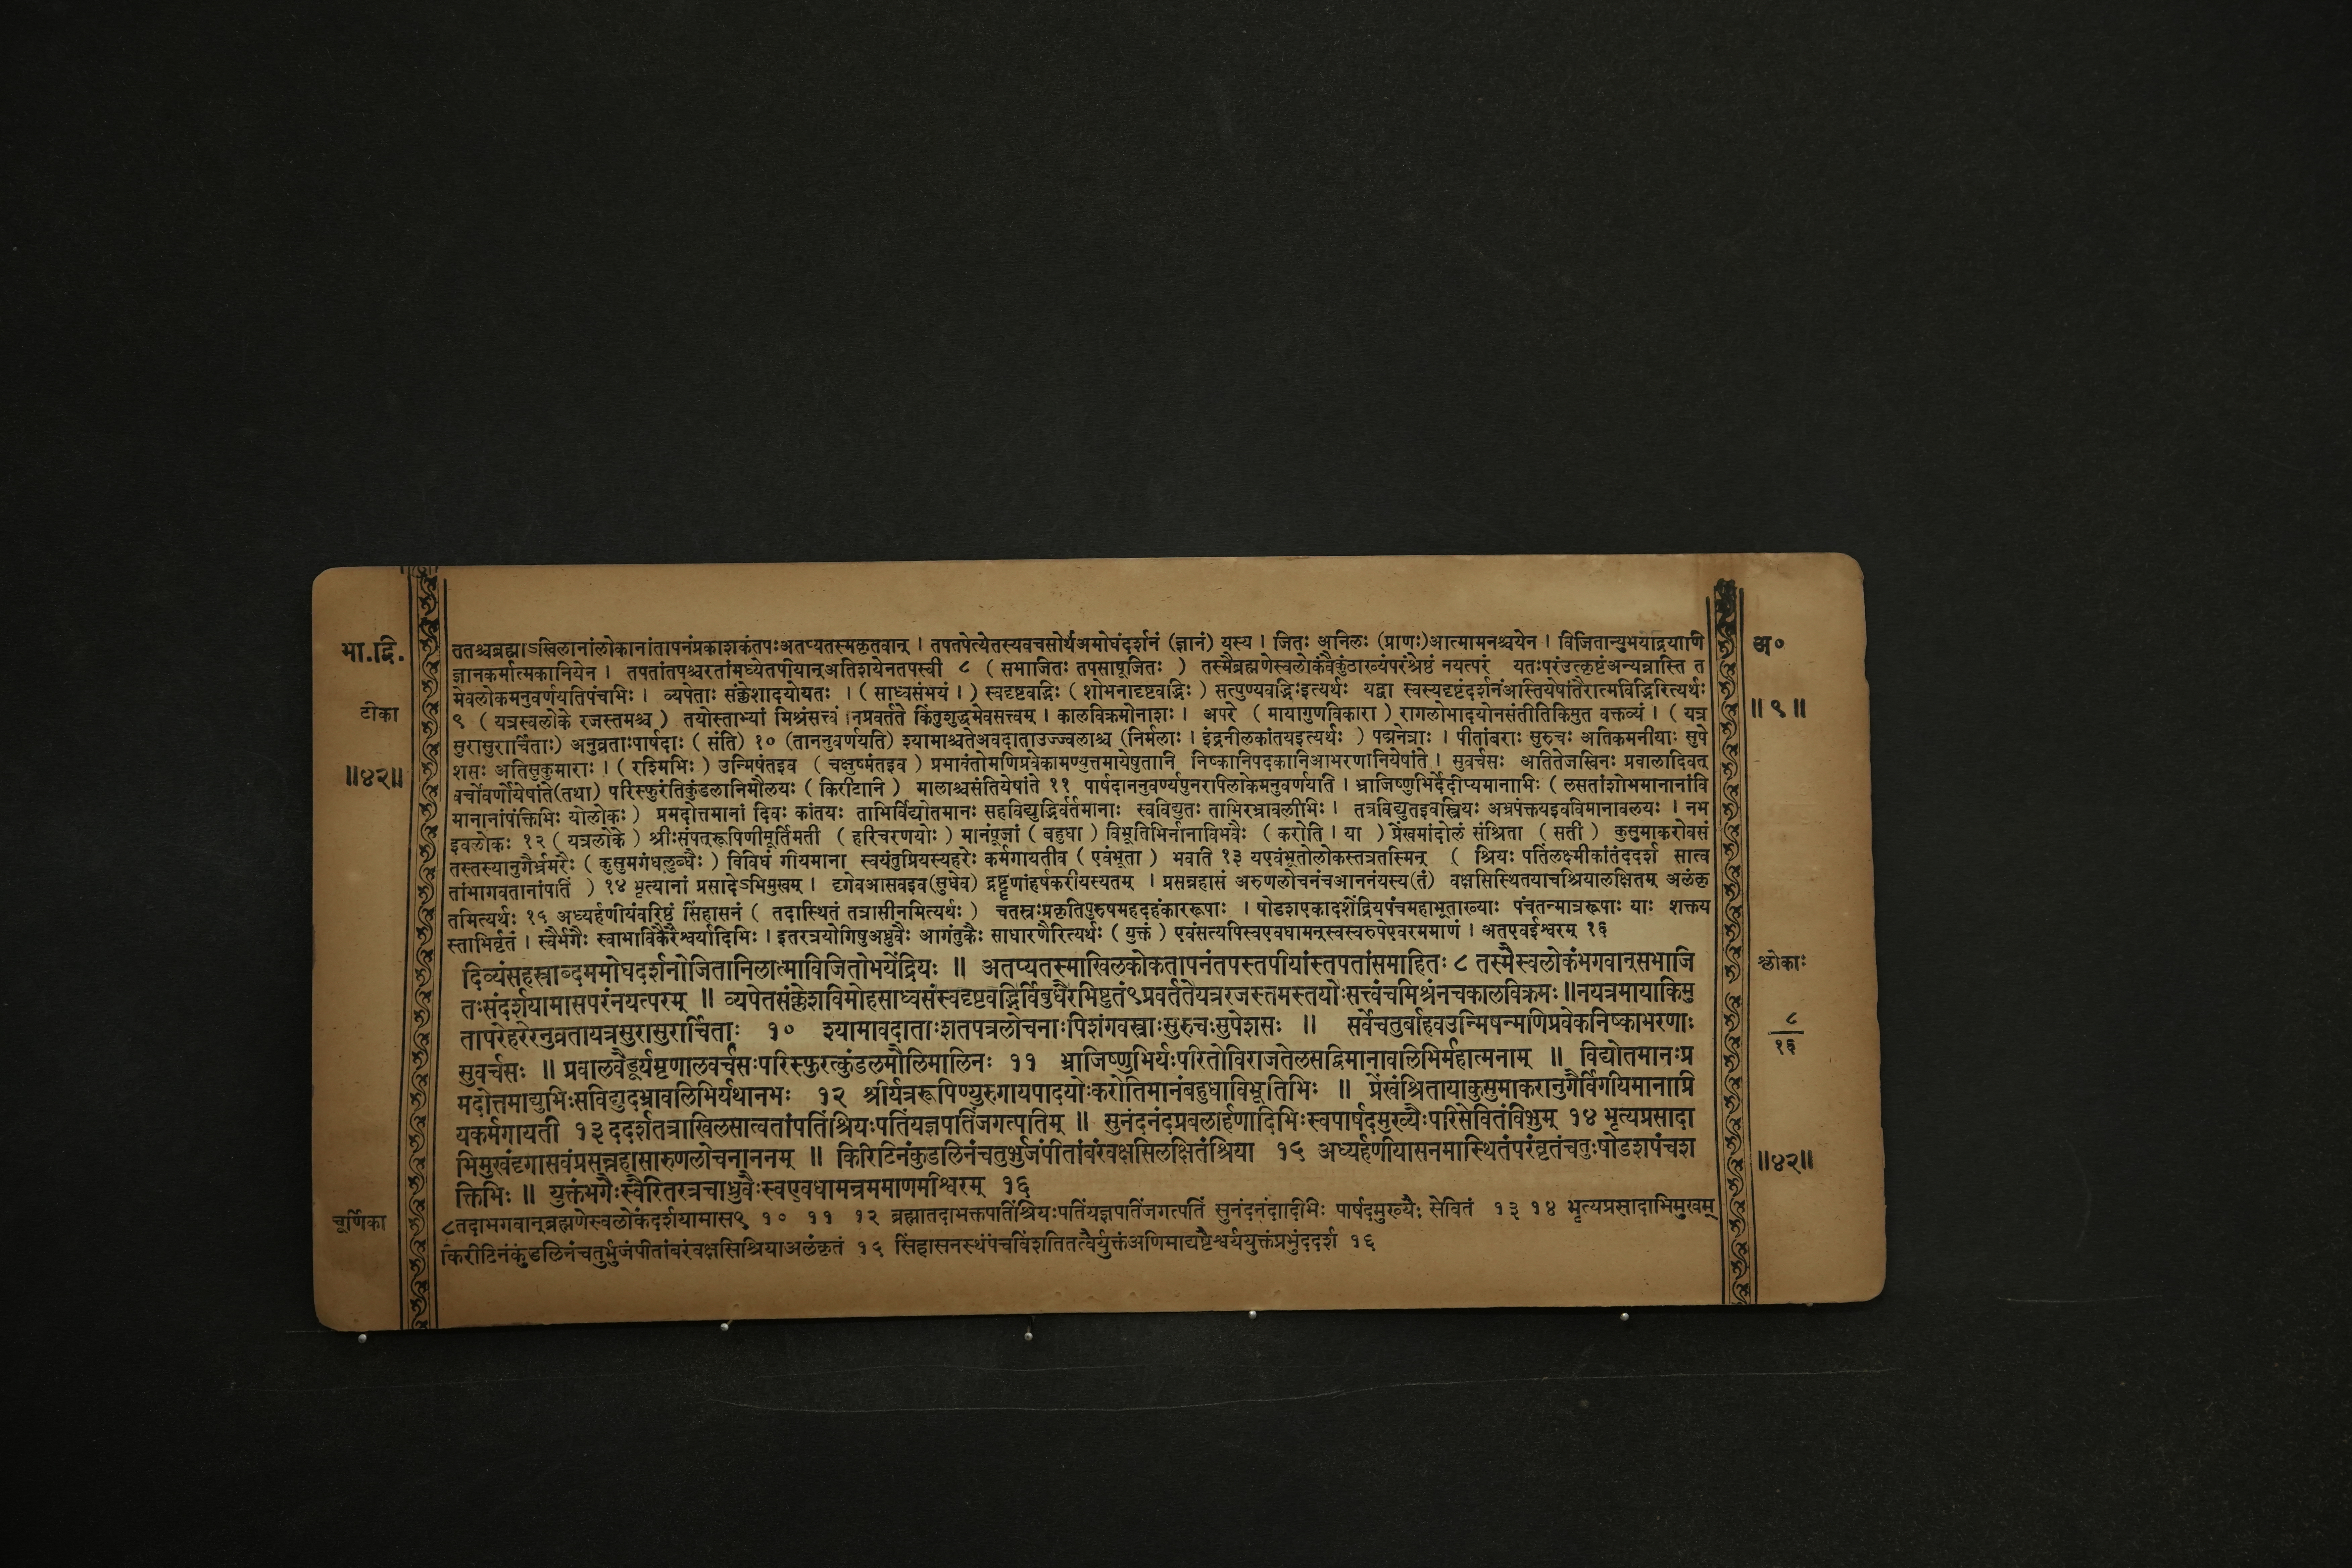 भा.द्वि.
टीका
॥४२॥
ततश्चब्रह्माऽखिलानांलोकानांतापनंप्रकाशकंतपःअतप्यतस्मकृतवान् । तपतपेत्येतस्यवचसोर्थेअमोघंदर्शनं (ज्ञानं) यस्य । जितः अनिलः (प्राणः)आत्मामनश्चयेन । विजितान्युभयाद्रियाणि
ज्ञानकर्मात्मकानियेन । तपतांतपश्चरतांमध्येतपीयान्अतिशयेनतपस्वी ८ ( सभाजितः तपसापूजितः ) तस्मैब्रह्मणेस्वलोकंवैकुंठाख्यंपरंश्रेष्ठं नयत्परं यतःपरंउत्कृष्टंअन्यन्नास्ति त
मेवलोकमनुवर्णयतिपंचभिः । व्यपेताः संक्लेशादयोयतः । ( साध्वसंभयं । ) स्वदृष्टवद्भिः ( शोभनादृष्टवद्भिः ) सत्पुण्यवद्भिःइत्यर्थः यद्वा स्वस्यदृष्टंदर्शनंआस्तियेषांतैरात्मविद्भिरित्यर्थः
९ ( यत्रस्वलोके रजस्तमश्च ) तयोस्ताभ्यां मिश्रंसत्त्वं नप्रवर्तते किंतुशुद्धमेवसत्त्वम् । कालविक्रमोनाशः । अपरे ( मायागुणविकारा ) रागलोभादयोनसंतीतिकिमुत वक्तव्यं । ( यत्र
सुरासुरार्चिताः) अनुव्रताःपार्षदाः ( संति) १० (ताननुवर्णयति) श्यामाश्चतेअवदाताउज्ज्वलाश्च (निर्मलाः । इंद्रनीलकांतयइत्यर्थः ) पद्मनेत्राः । पीतांबराः सुरुचः अतिकमनीयाः सुपे
शसः अतिसुकुमाराः । ( रश्मिभिः ) उन्मिषंतइव ( चक्षुष्मंतइव ) प्रभावंतोमणिप्रवेकामण्युत्तमायेषुतानि निष्कानिपदकानिआभरणानियेषांते । सुवर्चसः अतितेजस्विनः प्रवालादिवत्
वर्चोवर्णोयेषांते(तथा) परिस्फुरंतिकुंडलानिमौलयः ( किरीटानि ) मालाश्चसंतियेषांते ११ पार्षदाननुवर्ण्यपुनरपिलोकमनुवर्णयति । भ्राजिष्णुभिर्देदीप्यमानाभिः ( लसतांशोभमानानांवि
मानानांपंक्तिभिः योलोकः ) प्रमदोत्तमानां दिवः कांतयः ताभिर्विद्योतमानः सहविद्युद्भिर्वर्तमानाः स्वविद्युतः ताभिरभ्रावलीभिः । तत्रविद्युतइवस्त्रियः अभ्रपंक्तयइवविमानावलयः । नभ
इवलोकः १२ ( यत्रलोके ) श्रीःसंपत्रूपिणीमूर्तिमती ( हरिचरणयोः ) मानंपूजां ( बहुधा ) विभूतिभिर्नानाविभवैः ( करोति । या ) प्रेंखमांदोलं संश्रिता ( सती ) कुसुमाकरोवसं
तस्तस्यानुगैर्भ्रमरैः ( कुसुमगंधलुब्धैः ) विविधं गीयमाना स्वयंतुप्रियस्यहरेः कर्मगायतीव ( एवंभूता ) भवति १३ यएवंभूतोलोकस्तत्रतस्मिन् ( श्रियः पतिंलक्ष्मीकांतंददर्श सात्व
तांभागवतानांपतिं ) १४ भृत्यानां प्रसादेऽभिमुखम् । दृगेवआसवइव(सुधेव) द्रष्टॄणांहर्षकरीयस्यतम् । प्रसन्नहासं अरुणलोचनंचआननंयस्य(तं) वक्षसिस्थितयाचश्रियालक्षितम् अलंकृ
तमित्यर्थः १५ अध्यर्हणीयंवरिष्ठं सिंहासनं ( तदास्थितं तत्रासीनमित्यर्थः ) चतस्रःप्रकृतिपुरुषमहदहंकाररूपाः । षोडशएकादशेंद्रियपंचमहाभूताख्याः पंचतन्मात्ररूपाः याः शक्तय
स्ताभिर्वृतं । स्वैर्भगैः स्वाभाविकैरैश्वर्यादिभिः । इतरत्रयोगिषुअध्रुवैः आगंतुकैः साधारणैरित्यर्थः ( युक्तं ) एवंसत्यपिस्वएवधामन्स्वस्वरुपेएवरममाणं । अतएवईश्वरम् १६
दिव्यंसहस्राब्दममोघदर्शनोजितानिलात्माविजितोभयेंद्रियः ॥ अतप्यतस्माखिलकोकतापनंतपस्तपीयांस्तपतांसमाहितः ८ तस्मैस्वलोकंभगवान्सभाजि
तःसंदर्शयामासपरंनयत्परम् ॥ व्यपेतसंक्लेशविमोहसाध्वसंस्वदृष्टवद्भिर्विबुधैरभिष्टुतं९प्रवर्ततेयत्ररजस्तमस्तयोःसत्त्वंचमिश्रंनचकालविक्रमः॥नयत्रमायाकिमु
तापरेहरेरनुव्रतायत्रसुरासुरार्चिताः १० श्यामावदाताःशतपत्रलोचनाःपिशंगवस्त्राःसुरुचःसुपेशसः ॥ सर्वेचतुर्बाहवउन्मिषन्मणिप्रवेकनिष्काभरणाः
सुवर्चसः ॥ प्रवालवैडूर्यमृणालवर्चसःपरिस्फुरत्कुंडलमौलिमालिनः ११ भ्राजिष्णुभिर्यःपरितोविराजतेलसद्विमानावलिभिर्महात्मनाम् ॥ विद्योतमानःप्र
मदोत्तमाद्युभिःसविद्युदभ्रावलिभिर्यथानभः १२ श्रीर्यत्ररूपिण्युरुगायपादयोःकरोतिमानंबहुधाविभूतिभिः ॥ प्रेंखंश्रितायाकुसुमाकरानुगैर्विगीयमानाप्रि
यकर्मगायती १३ ददर्शतत्राखिलसात्वतांपतिंश्रियःपतिंयज्ञपतिंजगत्पतिम् ॥ सुनंदनंदप्रबलार्हणादिभिःस्वपार्षदमुख्यैःपरिसेवितंविभुम् १४ भृत्यप्रसादा
भिमुखंदृगासवंप्रसन्नहासारुणलोचनाननम् ॥ किरिटिनंकुंडलिनंचतुर्भुजंपीतांबरंवक्षसिलक्षितंश्रिया १५ अध्यर्हणीयासनमास्थितंपरंवृतंचतुःषोडशपंचश
क्तिभिः ॥ युक्तंभगैःस्वैरितरत्रचाध्रुवैःस्वएवधामन्रममाणमीश्वरम् १६
चूर्णिका
८तदाभगवान्ब्रह्मणेस्वलोकंदर्शयामास९ १० ११ १२ ब्रह्मातदाभक्तपतिंश्रियःपतिंयज्ञपतिंजगत्पतिं सुनंदनंदादिभिः पार्षदमुख्यैः सेवितं १३ १४ भृत्यप्रसादाभिमुखम्
किरीटिनंकुंडलिनंचतुर्भुजंपीतांबरंवक्षसिश्रियाअलंकृतं १५ सिंहासनस्थंपंचविंशतितत्वैर्युक्तंअणिमाद्यष्टैश्वर्ययुक्तंप्रभुंददर्श १६
अ०
॥९॥
श्लोकाः
८
१६
॥४२॥